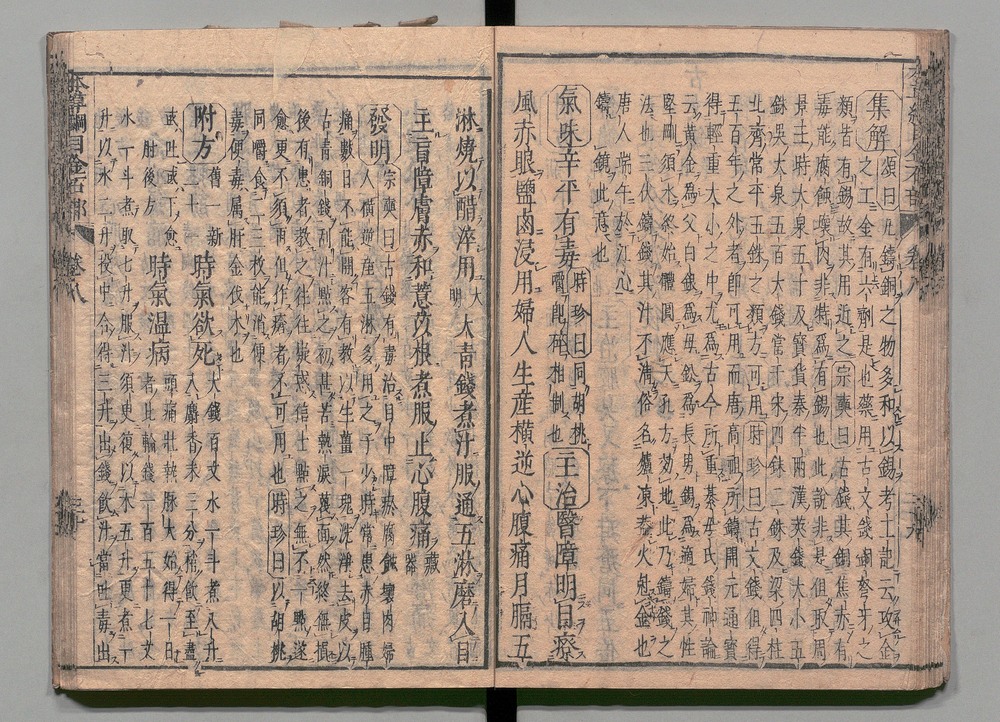 集解頌曰凡鑄銅之物多和以錫考工記云攻金
之工金有六齊是也藥用古文錢銅弩牙之
類皆有錫故其用近之宗奭曰古錢其銅焦赤有
毒能腐蝕壞肉非特爲有錫也此說非是但取周
景王大泉五十及寳貨秦半兩漢莢錢大小五
銖吳大泉五百大錢當千宋四銖二銖及梁四柱
北齊常平五銖之類方可用時珍曰古文錢但得
五百年之外者即可用而唐高祖所鑄開元通寳
得輕重大小之中尤爲古今所重綦母氏錢神論
云黃金爲父白銀爲母鉛爲長男錫爲適婦其性
堅剛須水終始體圓應天孔方効地此乃鑄錢之
法也三伏鑄錢其汁不清俗名爐凍蓋火尅金也
唐人端午於江心
鑄鏡此意也
氣味辛平有毒時珍曰同胡桃嚼即碎相制也主治翳障明目療
風赤眼鹽鹵浸用婦人生産橫逆心腹痛月膈五
淋燒以醋淬用大明大青錢煮汁服通五淋磨入目
主盲障膚赤和薏苡根煮服止心腹痛藏器
發明宗奭曰古錢有毒治目中障瘀腐蝕壞肉婦
人橫逆産五淋多用之予少時常患赤目腫
痛數日不能開客有教以生薑一塊洗淨去皮以
古青銅錢刮汁點之初甚苦熱淚蔑面然終無損
後有患者教之往往疑惑信士點之無不一點遂
愈更不須再但作瘡者不可用也時珍曰以胡桃
同嚼食二三枚能消便
毒便毒属肝金伐木也
附方舊一新二十時氣欲死大錢百文水一斗煮八升
入麝香末三分稍飲至盡
或吐或下愈
肘後方時氣溫病頭痛壯熱脉大始得一日
者比輪錢一百五十七文
水一斗煮取七升服汁須臾復以水五升更煮一
升以水二升投中合得三升出錢飲汁當吐毒出
本草綱目金石部 卷八 三十